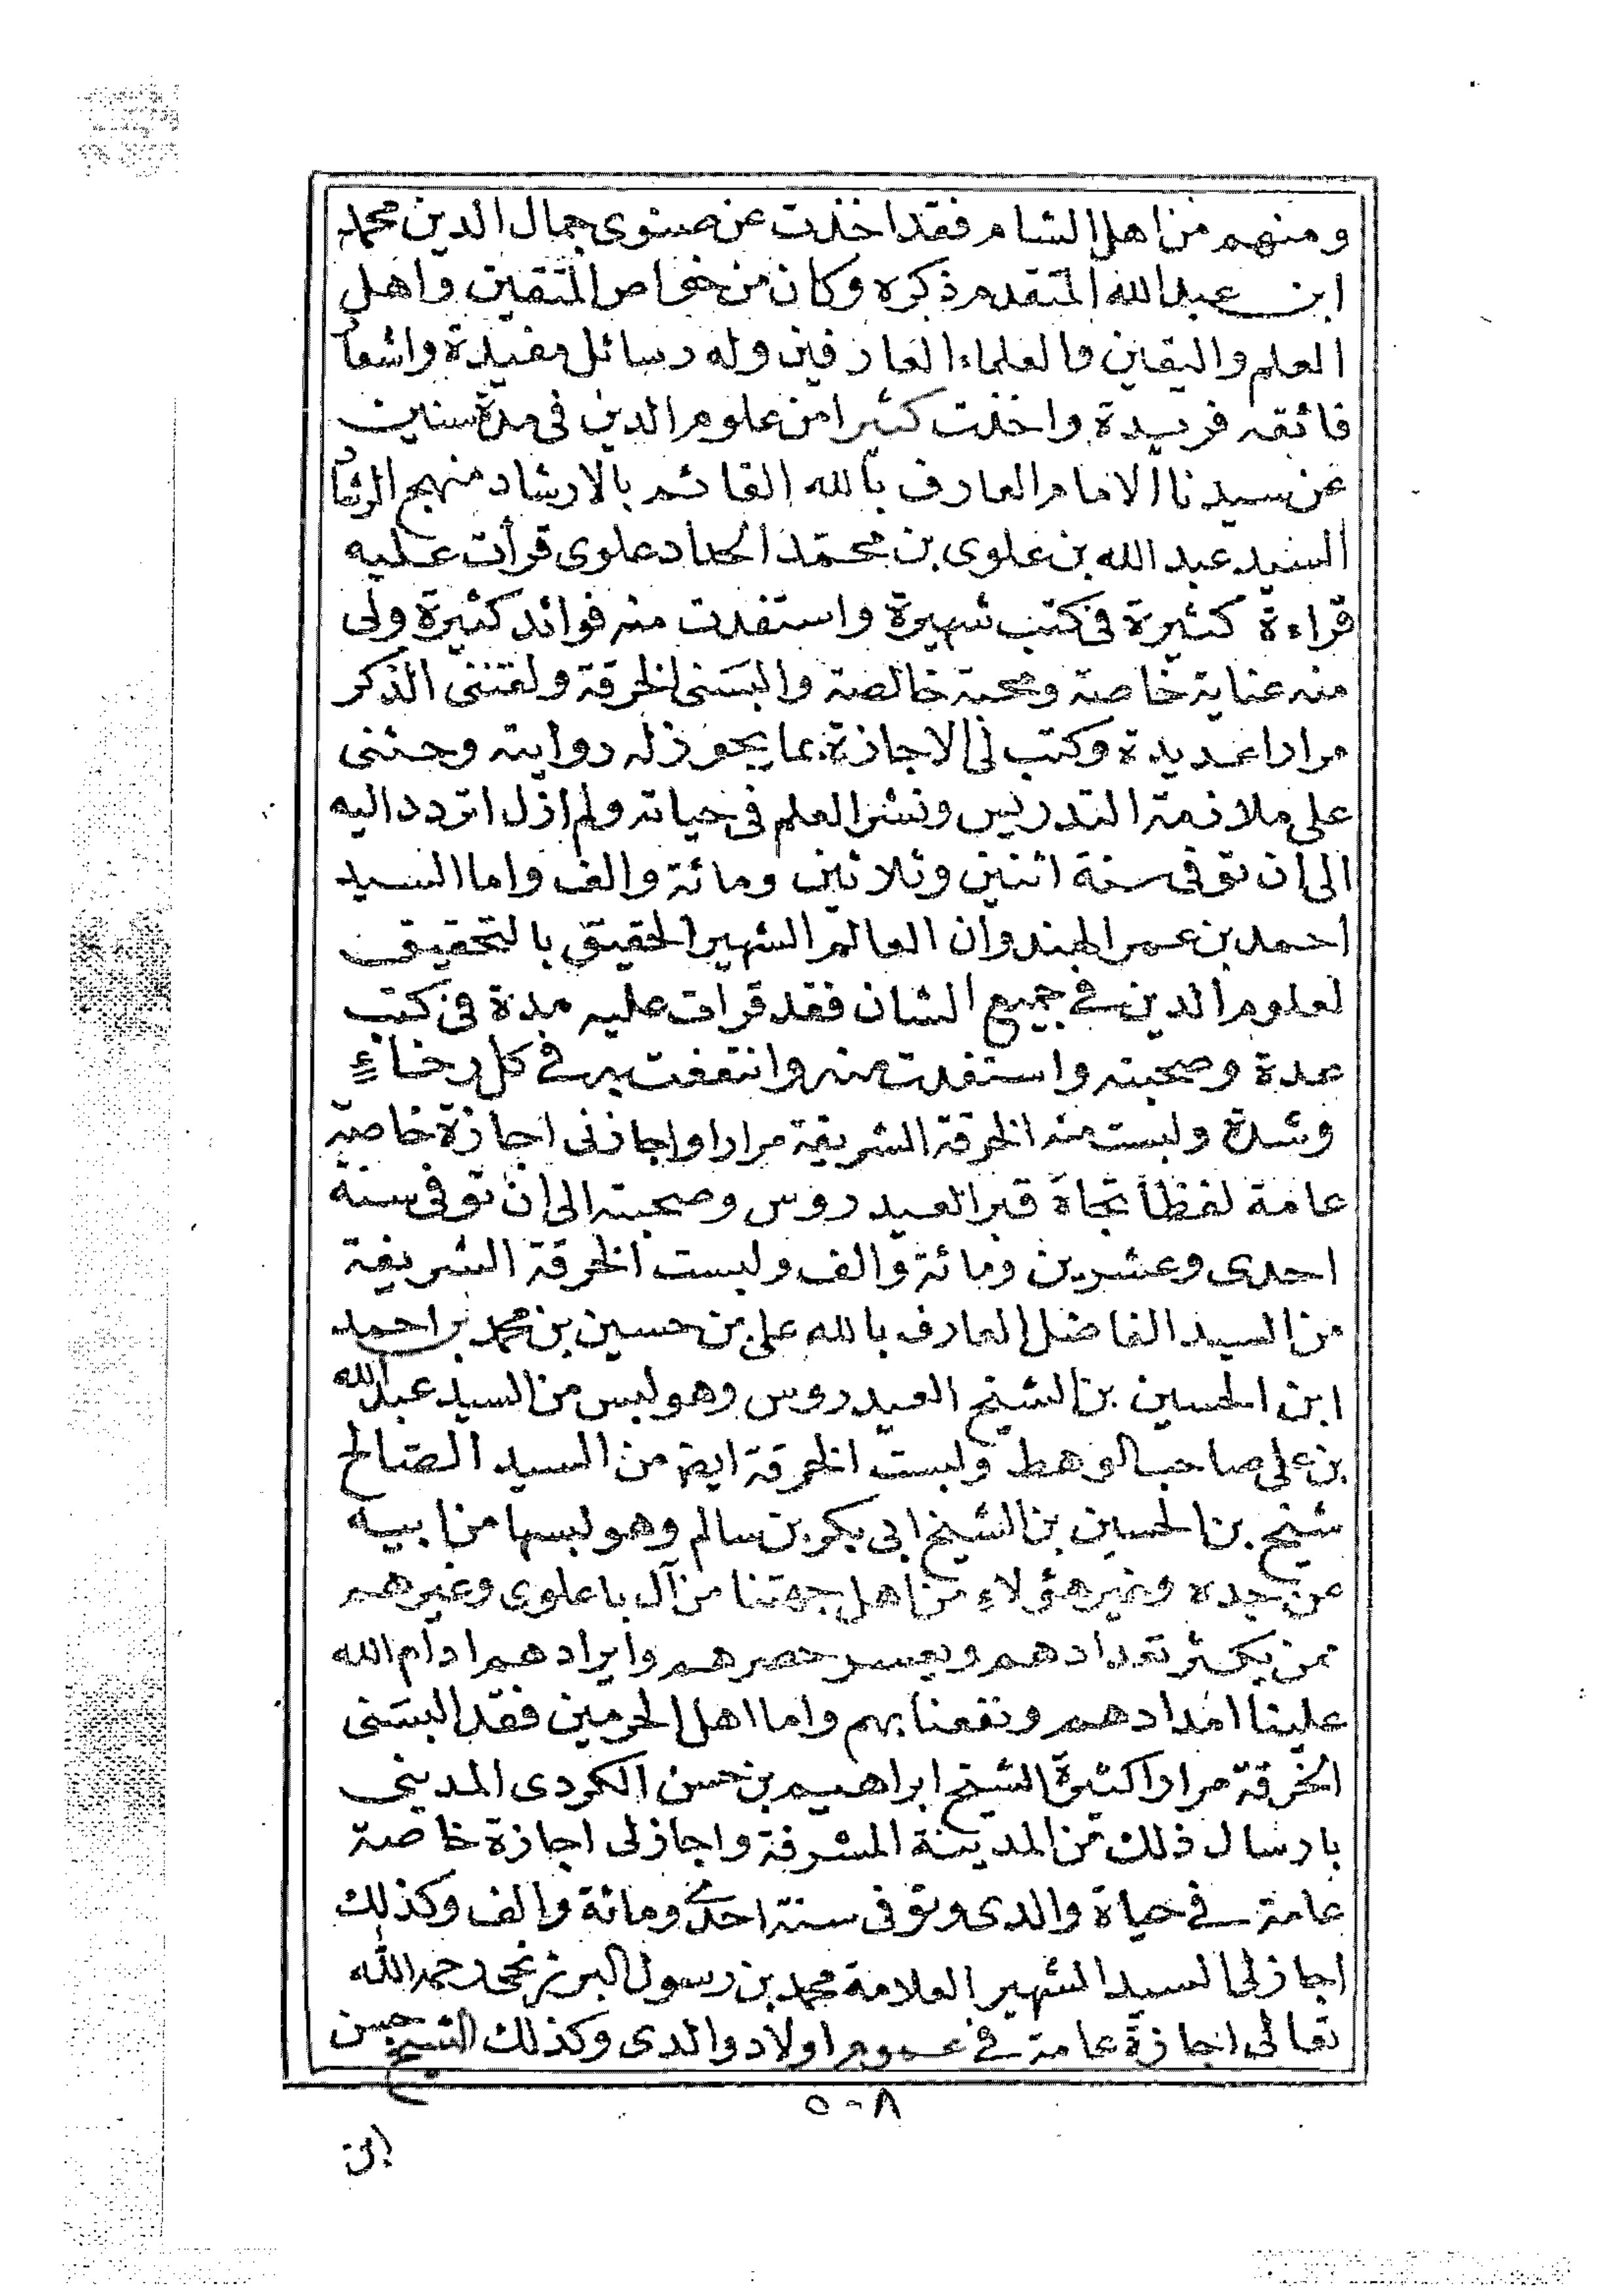 ومنهم من اهل الشام فقد اخذت عن صنوى جمال الدين محمد
ابن عبد الله المتقدم ذكره وكان من خواص المتقين واهل
العلم واليقين والعلماء العارفين وله رسائل مفيدة واشعا
فائقه فريدة واخذت كثيرا من علوم الدين فى مدة سنين
عن سيدنا الامام العارف بالله القائم بالارشاد منهج الرشا
السيد عبد الله بن علوى بن محمد الحداد علوى قرأت عليه
قراءة كثيرة فى كتب شهيرة واستفدت منه فوائد كثيرة ولى
منه عناية خاصة ومحبة خالصة والبسنى الخرقة ولقننى الذكر
مرارا عديدة وكتب لى الاجازة بما يجوز له روايته وحثنى
على ملازمة التدريس ونشر العلم فى حياته ولم ازل اتردد اليه
الى ان توفى سنة اثنين وثلاثين ومائة والف واما السيد
احمد بن عمر الهندوان العالم الشهير الحقيق بالتحقيق
لعلوم الدين فى جميع الشان فقد قرأت عليه مدة فى كتب
عدة وصحبته واستفدت منه وانتفعت به فى كل رخاء
وشدة ولبست منه الخرقة الشريفة مرارا واجازنى اجازة خاصة
عامة لفظا تجاه قبر العيدروس وصحبته الى ان توفى سنة
احدى وعشرين ومائة والف ولبست الخرقة الشريفة
من السيد الفاضل العارف بالله على بن حسين بن محمد بن احمد
ابن الحسين بن الشيخ العيدروس وهو لبس من السيد عبد الله
بن على صاحب الوهط ولبست الخرقة ايضا من السيد الصالح
شيخ بن الحسين بن الشيخ ابى بكر بن سالم وهو لبسها من ابيه
عن جده وغير هؤلاء من اهل جهتنا من آل باعلوى وغيرهم
ممن يكثر تعدادهم ويعسر حصرهم وايرادهم ادام الله
علينا امدادهم ونفعنا بهم واما اهل الحرمين فقد البسنى
الخرقة مرارا كثيرة الشيخ ابراهيم بن حسن الكردى المدينى
بارسال ذلك من المدينة المشرفة واجازلى اجازة خاصة
عامة فى حياة والدى وتوفى سنة احدى ومائة والف وكذلك
اجازلى السيد الشهير العلامة محمد بن رسول البرزنجى رحمه الله
تعالى اجازة عامة فى عموم اولاد والدى وكذلك الشيخ حسن
٥٠٨